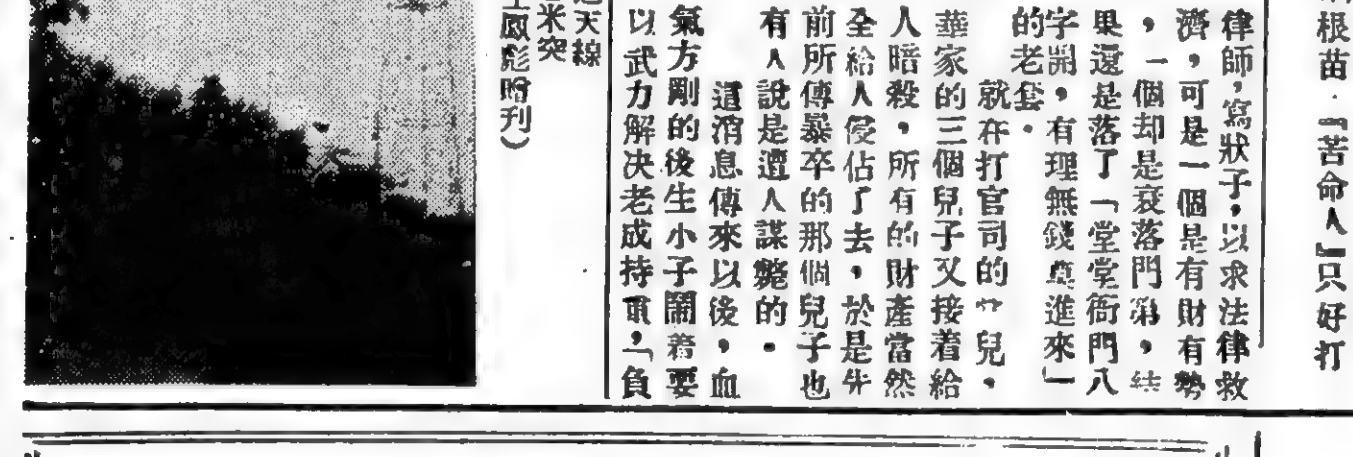 根苗·『苦命人』只好打
律師，寫狀子，以求法律救
濟，可是一個是有財有勢
，一個却是衰落門第，結
果還是落了「堂堂衙門八
字開，有理無錢莫進來」
的老套。
就在打官司的兒，
華家的三個兒子又接着給
人暗殺，所有的財產當然
全給人侵佔了去，於是先
前所傳暴卒的那個兒子也
有人說是遭人謀斃的。
這消息傳來以後，血
氣方剛的後生小子鬧着要
以武力解決老成持重，「負
天線
米突
鳳彪階刊）